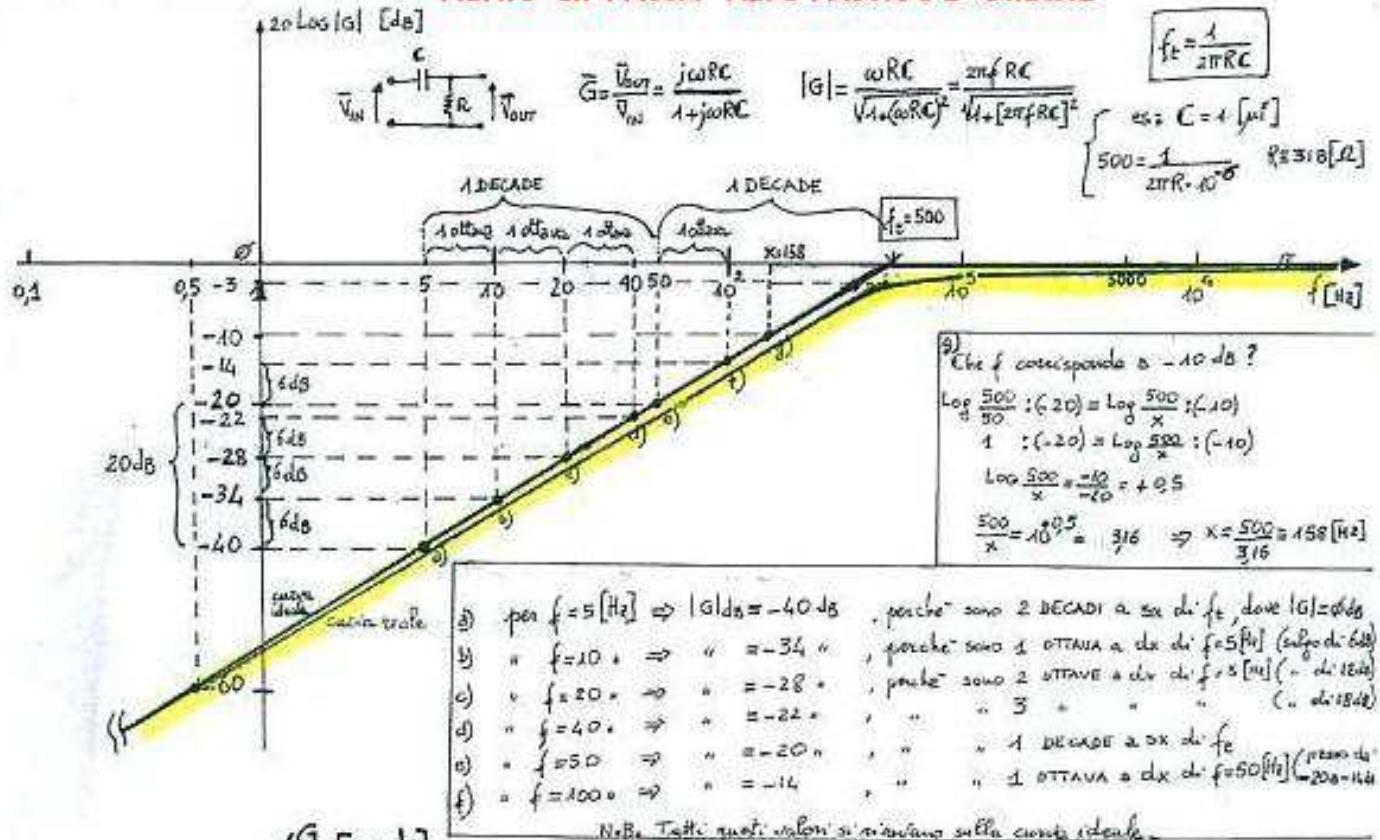 20 Log |G| [dB]
C
R
V̄IN
V̄OUT
Ḡ = V̄OUT/V̄IN = jωRC/1+jωRC
|G| = ωRC/√1+(ωRC)² = 2πfRC/√1+[2πfRC]²
ft = 1/2πRC
es: C = 1 [μF]
500 = 1/2πR·10⁻⁶ R≅318[Ω]
1 DECADE 1 DECADE
1 ottava 1 ottava 1 ottava 1 ottava x=158 ft=500
0,1 0,5 1 5 10 20 40 50 10² 10³ 5000 10⁴ f [Hz]
Ø
-3
-10
-14
6dB
-20
-22
6dB
-28
6dB
20dB
-34
6dB
-40
-60
a) b) c) d) e) f) g)
curva ideale
curva reale
g)
Che f corrisponde a -10 dB ?
Log 500/50 : (-20) = Log 500/x : (-10)
1 : (-20) = Log 500/x : (-10)
Log 500/x = -10/-20 = +0,5
500/x = 10^0,5 = 3,16 ⇒ x = 500/3,16 ≅ 158 [Hz]
a) per f=5 [Hz] ⇒ |G|dB = -40 dB , perché sono 2 DECADI a sx di ft, dove |G|=ØdB
b) " f=10 " ⇒ " = -34 " , perché sono 1 OTTAVA a dx di f=5[Hz] (salgo di 6dB)
c) " f=20 " ⇒ " = -28 " , perché sono 2 OTTAVE a dx di f=5[Hz] ( " di 12dB)
d) " f=40 " ⇒ " = -22 " , " " 3 " " " ( " di 18dB)
e) " f=50 ⇒ " = -20 " , " " 1 DECADE a sx di ft
f) " f=100 " ⇒ " = -14 , " " 1 OTTAVA a dx di f=50[Hz]
N.B. Tutti questi valori si sulla curva ideale